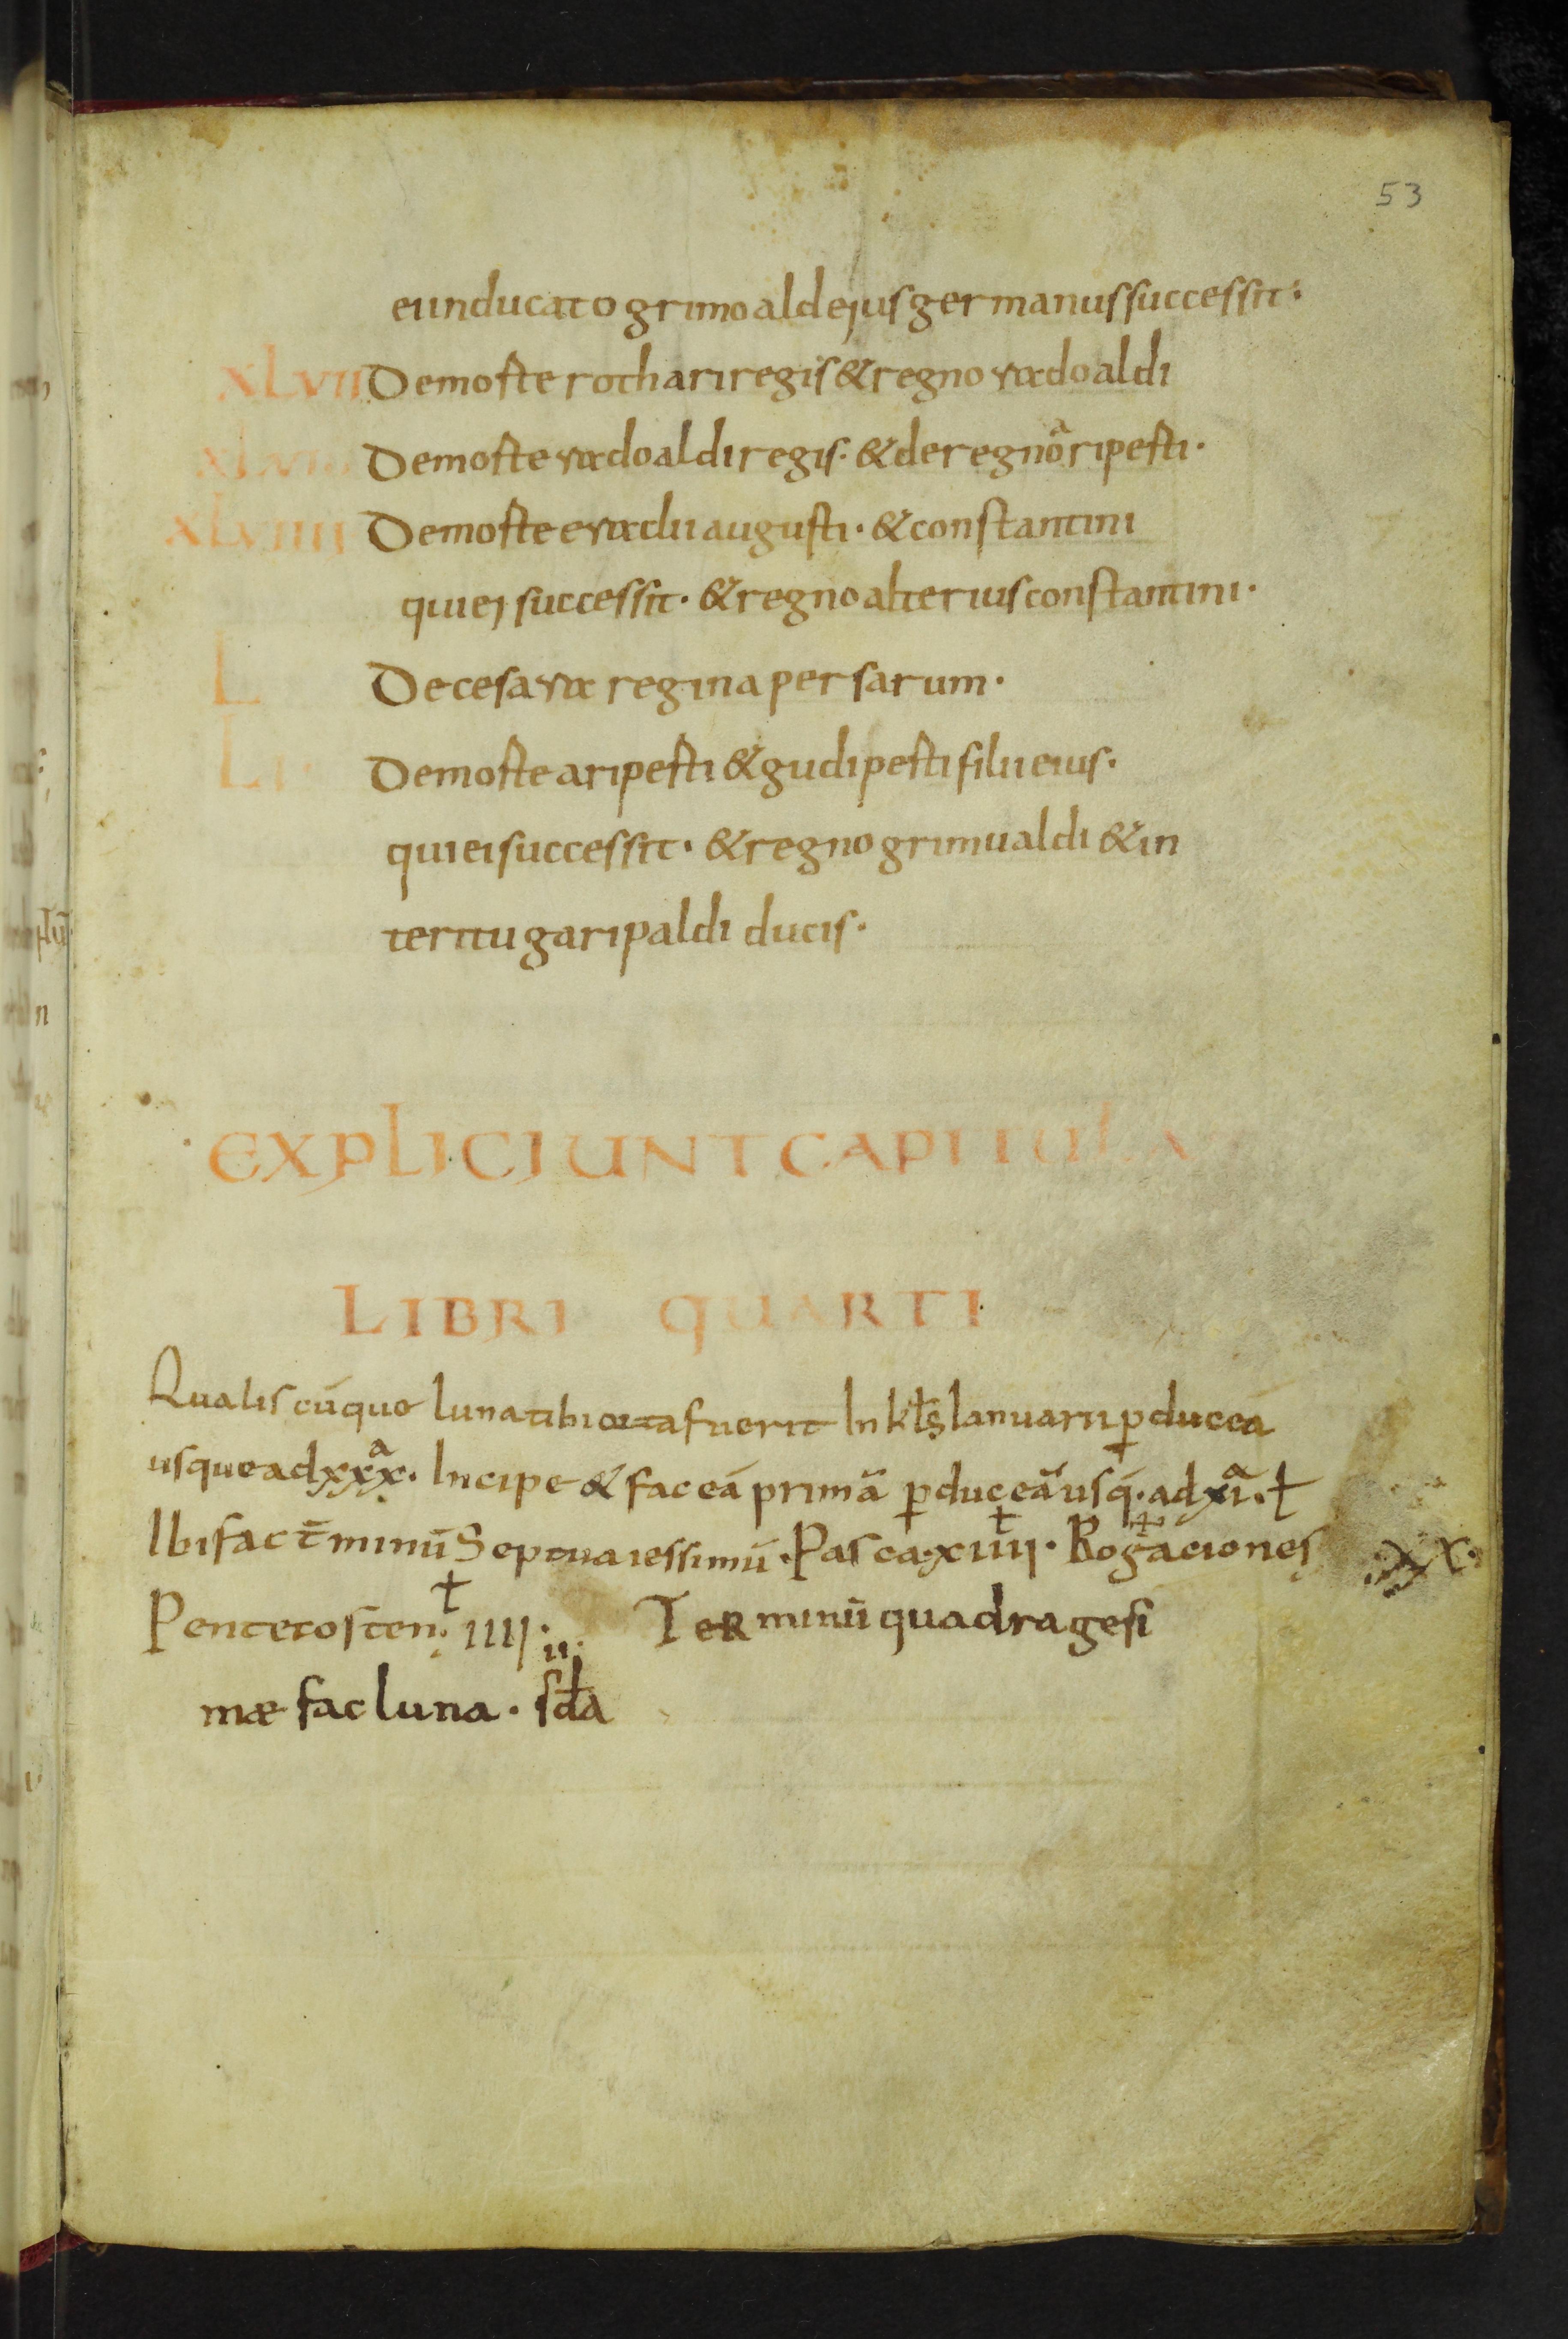 53
ei in ducato grimoald ejus germanus successit·
XLVII De morte rothari regis & regno rodoaldi
XLVIII De morte rodoaldi regis· & de regno ariperti·
XLVIIII De morte eraclii augusti· & constantini
qui ei successit· & regno alterius constantini·
L De cesara regina persarum·
LI De morte ariperti & gudiperti filii eius·
qui ei successit· & regno grimualdi & in
teritu garipaldi ducis·
EXPLICIUNT CAPITULA
LIBRI QUARTI
Qualiscūque luna tibi orta fuerit In kłs Ianuarii ꝑduc eā
usque ad xxxͣ. Incipe & fac eā primā ꝑduc eā usq· ad xiͣ. ł
Ibi fac t̄minū Septuaiessimū· Pasca· xiiii· Rogaciones xx·
Pentecosten· iiii· Terminū quadragesi
ii·
mæ fac luna· sđa